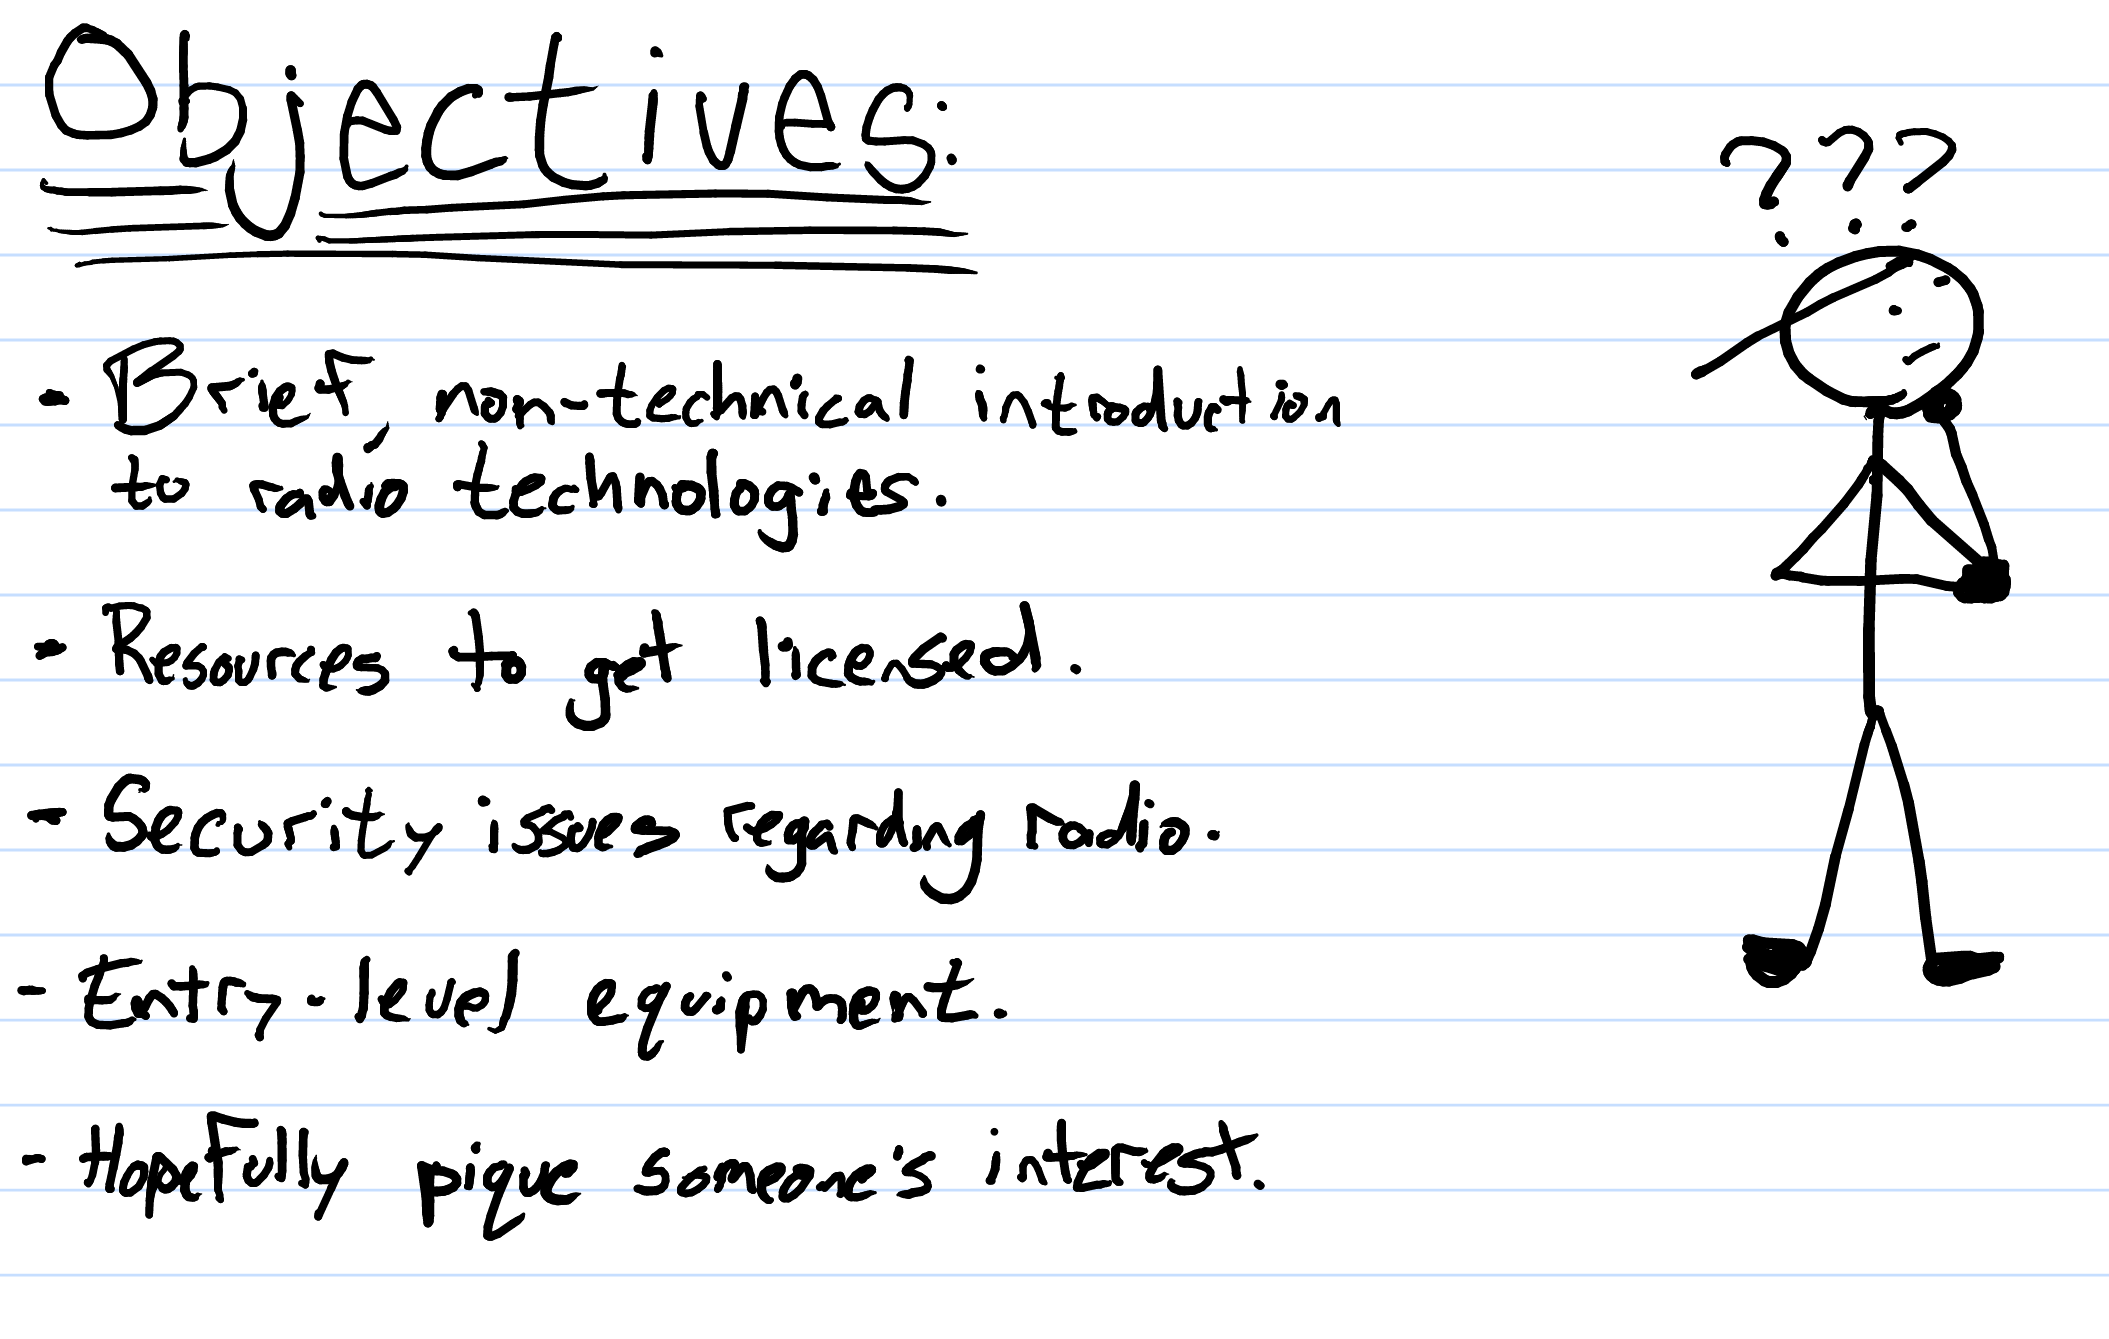 Objectives:
???
- Brief, non-technical introduction
to radio technologies.
- Resources to get licensed.
- Security issues regarding radio.
- Entry-level equipment.
- Hopefully pique someone's interest.